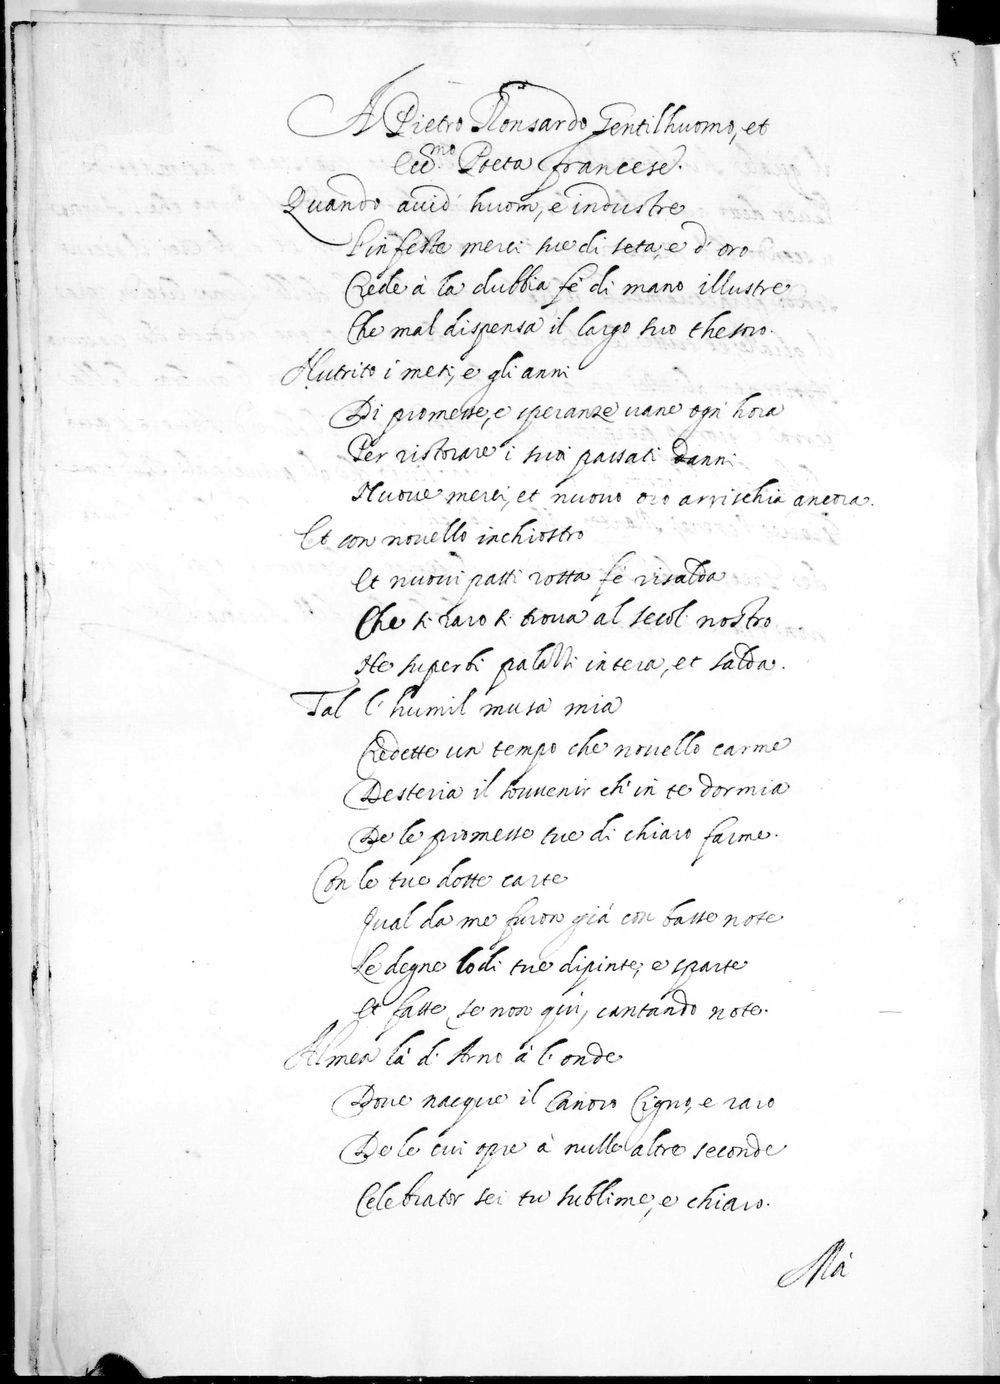 A Pietro Ronsardo Gentilhuomo, et
Ecc.mo Poeta francese.
Quando auid' huom, e industre
L'infeste merci sue di seta, e d' oro
Crede à la dubbia fé di mano illustre
Che mal dispensa il largo suo thesoro.
Nutrito i mesi, e gli anni
Di promesse, e speranze vane ogn' hora
Per ristorare i suoi passati danni
Nuove merci, et nuovo oro arrischia ancora.
Et con novello inchiostro
Et nuovi patti rotta fé risalda
Che sì raro si trova al secol nostro
Ne superbi palazzi intera, et salda.
Tal l' humil musa mia
Credette un tempo che novello carme
Desteria il souvenir ch' in te dormia
De le promesse tue di chiaro farme.
Con le tue dotte carte
Qual da me furon già con basse note
Le degne lodi tue dipinte, e sparte
Et fatte, se non qui, cantando note.
Almen là d' Arno à l' onde
Dove nacque il Canoro Cigno, e raro
De le cui opre à nulle altre seconde
Celebrator sei tu sublime, e chiaro.
Mà